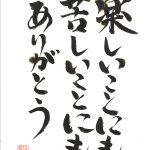 楽しいことにも
苦しいことにも
ありがとう